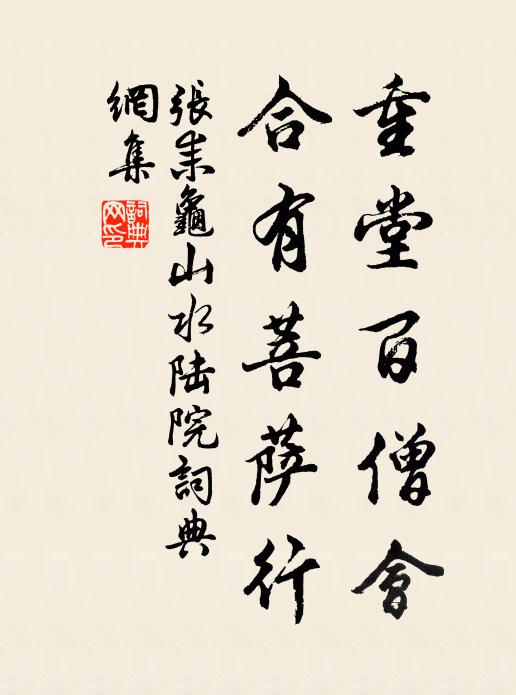 重堂百僧會
合有菩薩行
張耒龜山水陆院詞典
網集
詞典
网印